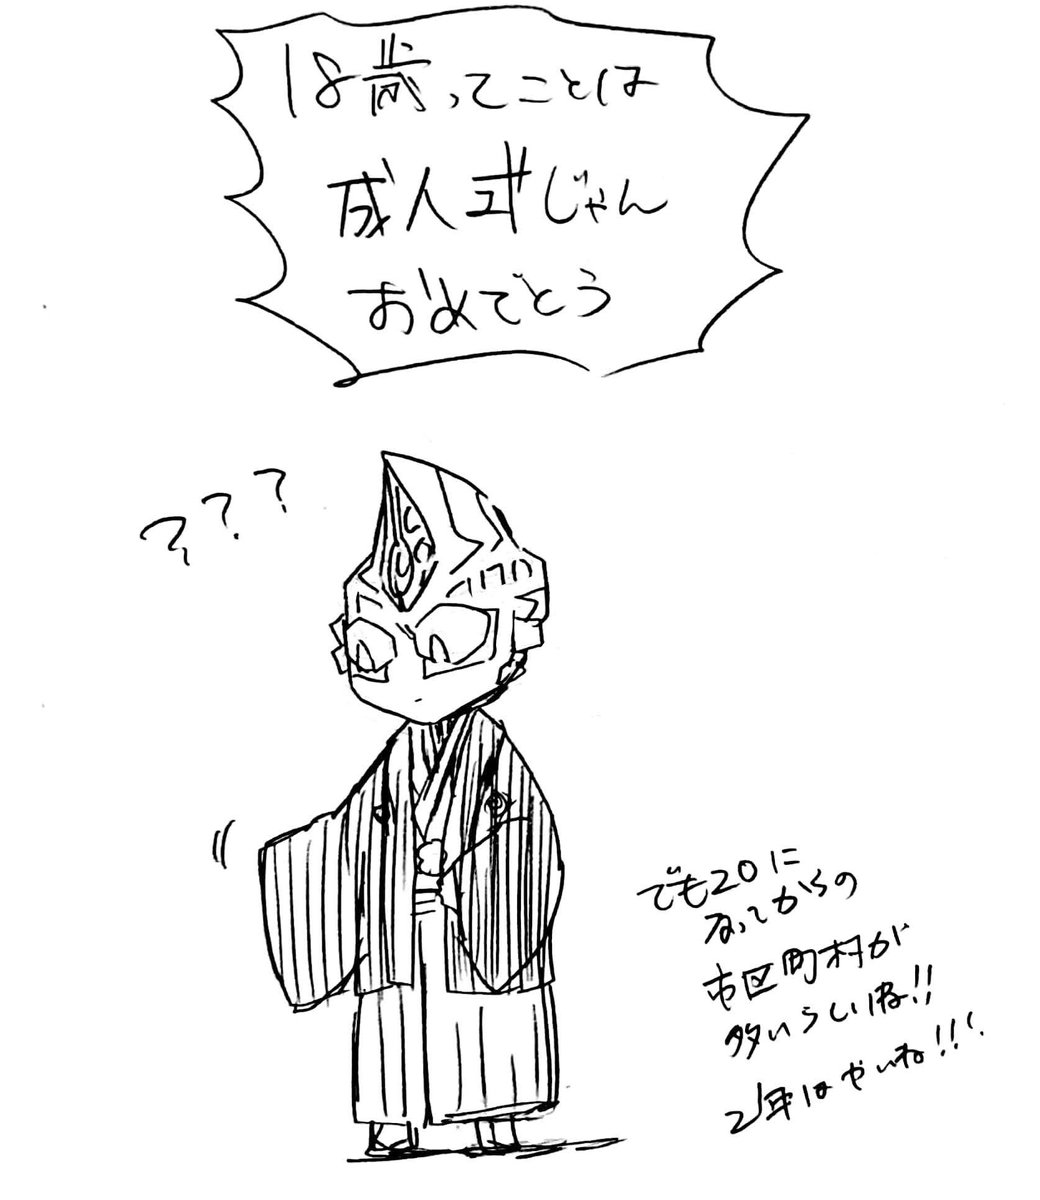 18歳ってことは
成人式じゃん
おめでとう
???
でも20に
なってからの
市区町村が
多いらしいね!!
2年はやいね!!!